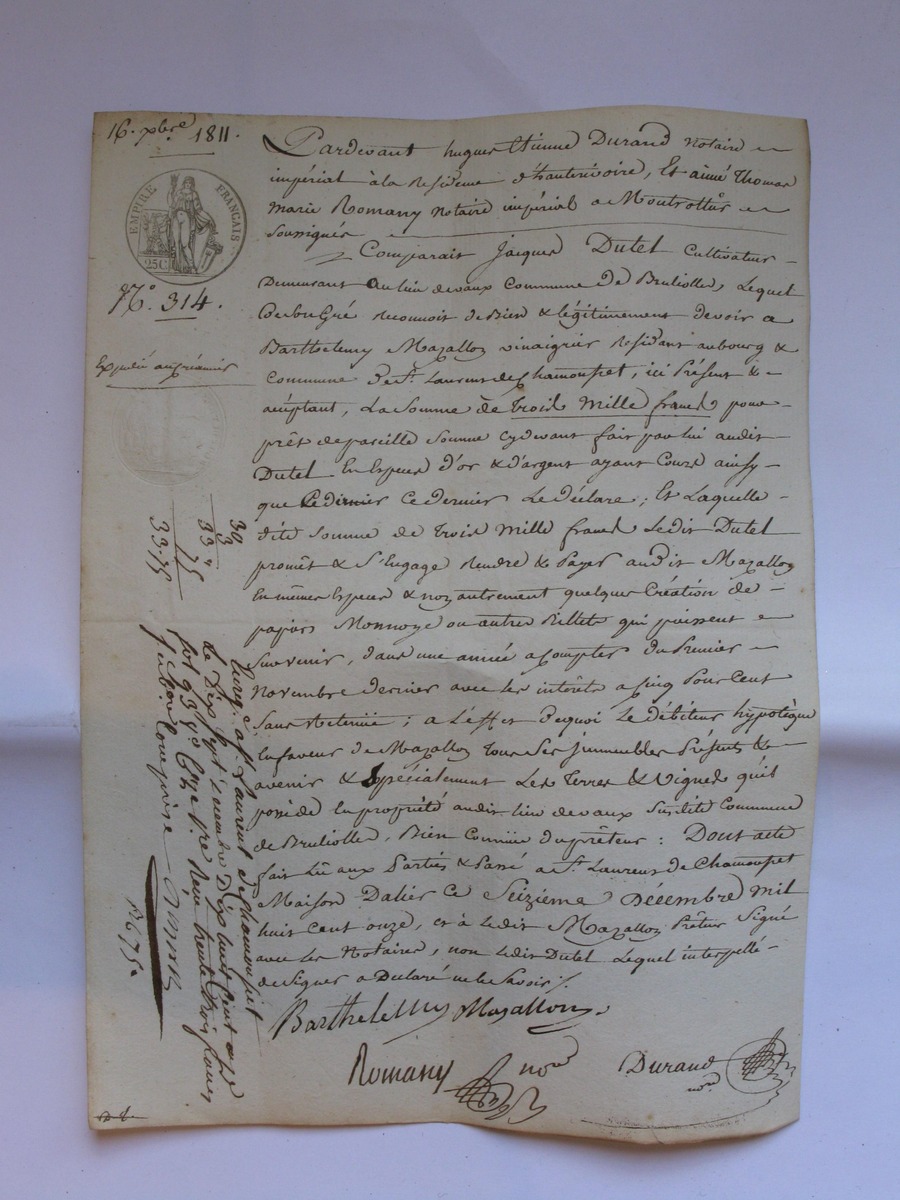 16. xbre 1811.
EMPIRE FRANÇAIS
25 C.
N.° 314.
Expédié au créancier
Pardevant hugues Etienne Durand Notaire
impérial à la Résidence d'hauterivoire, Et aimé Thomas
Marie Romany Notaire impérial a Montrottier
Soussignés
Comparait Jacques Dutel Cultivateur
Demeurant au lieu devaux Commune De Brullolle, Lequel
De son Gré reconnoit De Bien & légitimement devoir a
Barthelemy Mazallon vinaigrier Résidant au bourg &
Commune De St. Laurent de Chamousset, ici Présent &
acceptant, La Somme de trois Mille francs pour
prêt de pareille Somme cydevant fait par lui audit
Dutel En Especes d'or & d'argent ayant Cours ainsy
que ce dernier Le déclare; Et Laquelle
dite Somme de trois Mille francs Ledit Dutel
promêt & S'Engage Rendre & Payer audit Mazallon
En mêmes Especes & non autrement quelque Création de
papiers Monnoye ou autres Billets qui puissent
Survenir, dans une année a compter du Premier
Novembre dernier avec les intérêts a cinq Pour Cent
Sans Retenüe; a L'effet dequoi Le débiteur hypotèque
En faveur de Mazallon tous Ses immeubles Présents &
avenir & Spécialement Les Terres & Vignes qu'il
posséde En propriété audit lieu devaux Susdite Commune
de Brullolle, Bien Connüe du prêteur : Dont acte
fait Lû aux Parties & Passé a St. Laurent de Chamousset
Maison Dalier Ce Seizieme Décembre Mil
huit Cent onze, et a Ledit Mazallon Prêteur Signé
avec les Notaires, non Ledit Dutel Lequel interpellé
de Signer a Déclaré ne le Savoir ./.
Barthelemy Mazallon
Romany nore
Durand nore
30
3
33"
75
33.75
Enreg. a St. Laurent de Chamousset
Le Dix Sept decembre Dix huit Cent onze
fol 93 Vo Reçu trente trois francs